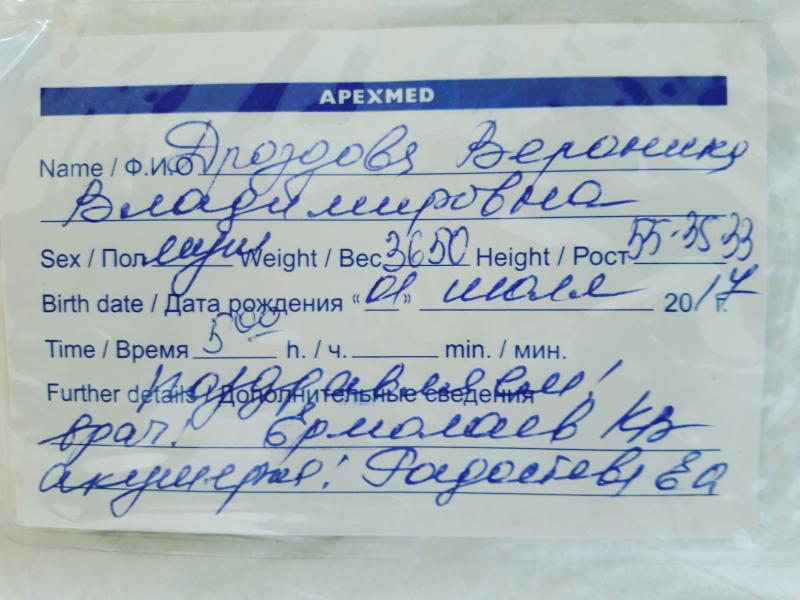 APEXMED
Name / Ф.И.О Дроздова Вероника
Владимировна
Sex / Пол Weight / Вес 3650 Height / Рост 55-35-33
Birth date / Дата рождения « 01 » июля 2017 г.
Time / Время 5 00 h. / ч. min. / мин.
Further details / Дополнительные сведения
поздравляем!
врач: Ермолаев КВ
акушерка: Радостева ЕА